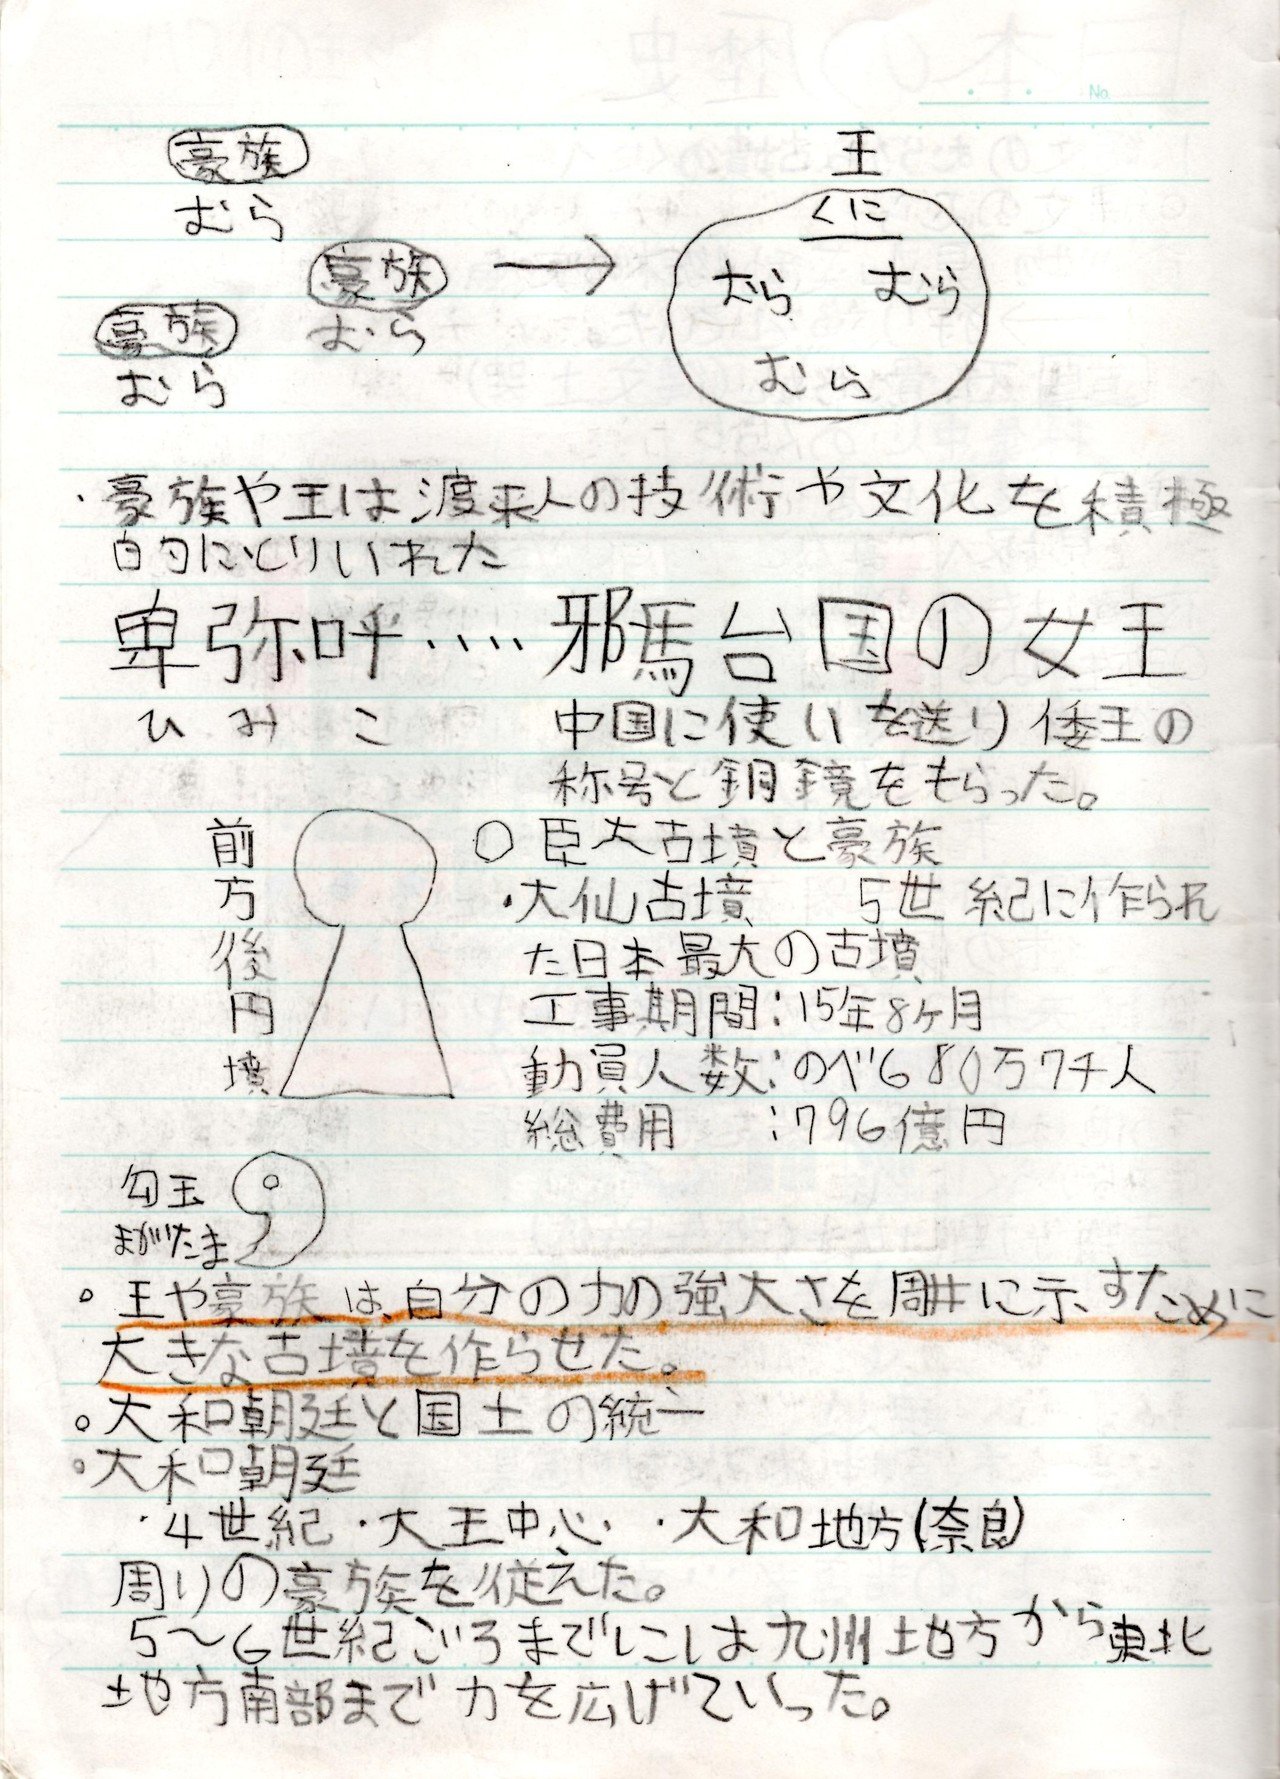 No.
豪族
むら
豪族
むら
豪族
むら
王
くに
むら むら
むら
・豪族や王は渡来人の技術や文化を積極
的にとりいれた
卑弥呼‥‥邪馬台国の女王
ひみこ 中国に使いを送り倭王の
称号と銅鏡をもらった。
前方後円墳
○臣大古墳と豪族
・大仙古墳 5世紀に作られ
た日本最大の古墳
工事期間:15年8ヶ月
動員人数:のべ680万7千人
総費用 :796億円
勾玉
まがたま
。王や豪族は、自分の力の強大さを周囲に示すために
大きな古墳を作らせた。
。大和朝廷と国土の統一
。大和朝廷
・4世紀・大王中心・大和地方(奈良)
周りの豪族を従えた。
5〜6世紀ごろまでには九州地方から東北
地方南部まで力を広げていった。